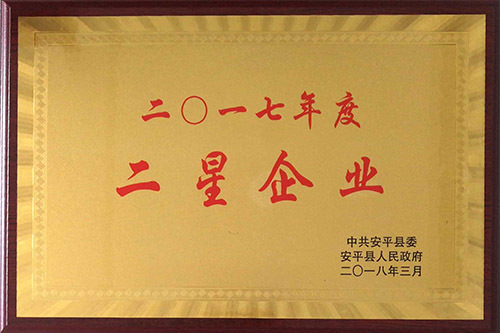 二〇一七年度
二星企业
中共安平县委
安平县人民政府
二〇一八年三月